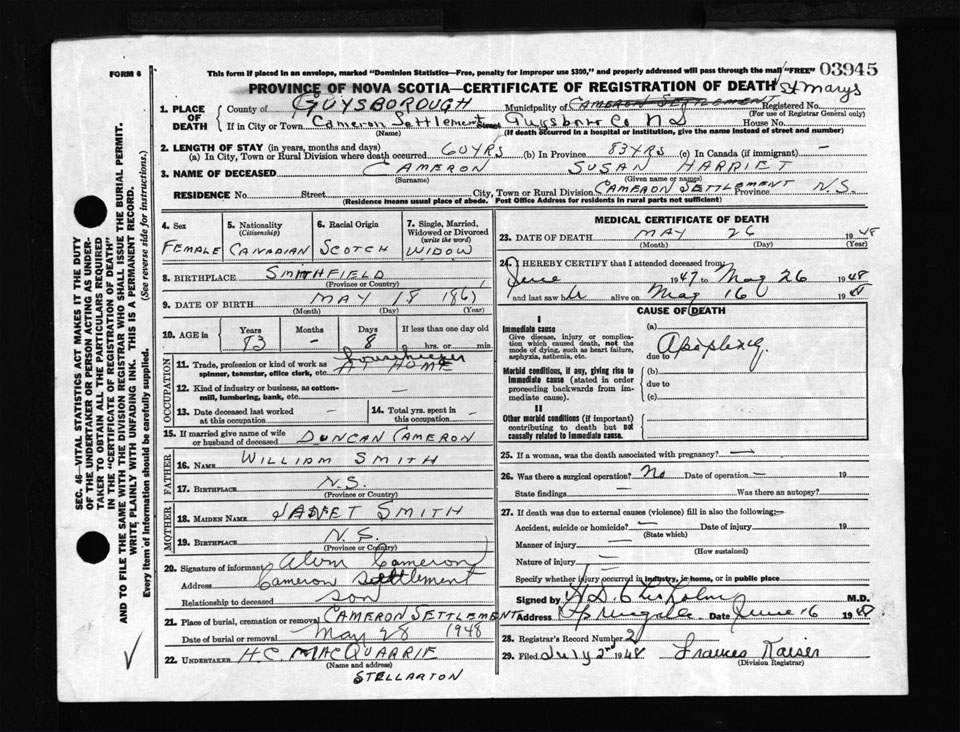 FORM 6
This form if placed in an envelope, marked "Dominion Statistics—Free, penalty for improper use $300," and properly addressed will pass through the mail "FREE" 03945
PROVINCE OF NOVA SCOTIA—CERTIFICATE OF REGISTRATION OF DEATH
St Marys
1. PLACE OF DEATH
County of GUYSBOROUGH Municipality of CAMERON SETTLEMENT Registered No.
(For use of Registrar General only)
If in City or Town Cameron Settlement Street Guysboro Co NS House No.
(Name) (If death occurred in a hospital or institution, give the name instead of street and number)
2. LENGTH OF STAY (in years, months and days)
(a) In City, Town or Rural Division where death occurred 60YRS (b) In Province 83YRS (c) In Canada (if immigrant) —
3. NAME OF DECEASED CAMERON SUSAN HARRIET
(Surname) (Given name or names)
RESIDENCE No. Street City, Town or Rural Division CAMERON SETTLEMENT Province N.S.
(Residence means usual place of abode. Post Office Address for residents in rural parts not sufficient)
4. Sex
FEMALE
5. Nationality
(Citizenship)
CANADIAN
6. Racial Origin
SCOTCH
7. Single, Married, Widowed or Divorced
(write the word)
WIDOW
8. BIRTHPLACE SMITHFIELD
(Province or Country)
9. DATE OF BIRTH MAY 18 186
(Month) (Day) (Year)
10. AGE in
Years Months Days If less than one day old
83 — 8 hrs. or min.
OCCUPATION
11. Trade, profession or kind of work as spinner, teamster, office clerk, etc. housekeeper AT HOME
12. Kind of industry or business, as cotton-mill, lumbering, bank, etc. —
13. Date deceased last worked at this occupation —
14. Total yrs. spent in this occupation —
15. If married give name of wife or husband of deceased DUNCAN CAMERON
FATHER
16. NAME WILLIAM SMITH
17. BIRTHPLACE N.S.
(Province or Country)
MOTHER
18. MAIDEN NAME JANET SMITH
19. BIRTHPLACE N.S.
(Province or Country)
20. Signature of informant Alvin Cameron
Address Cameron Settlement
Relationship to deceased son
21. Place of burial, cremation or removal CAMERON SETTLEMENT
Date of burial or removal May 28 1948
22. UNDERTAKER H.C. MACQUARRIE
(Name and address)
STELLARTON
MEDICAL CERTIFICATE OF DEATH
23. DATE OF DEATH MAY 26 1948
(Month) (Day) (Year)
24. I HEREBY CERTIFY that I attended deceased from:
June 1947 to May 26 1948
and last saw h alive on May 16 1948
CAUSE OF DEATH
I
Immediate cause
Give disease, injury or complication which caused death, not the mode of dying, such as heart failure, asphyxia, asthenia, etc.
(a)
due to Apoplexy.
Morbid conditions, if any, giving rise to immediate cause (stated in order proceeding backwards from immediate cause).
(b)
due to
(c)
II
Other morbid conditions (if important) contributing to death but not causally related to immediate cause.
25. If a woman, was the death associated with pregnancy? —
26. Was there a surgical operation? No Date of operation — 19
State findings — Was there an autopsy?
27. If death was due to external causes (violence) fill in also the following:—
Accident, suicide or homicide? — Date of injury 19
(State which)
Manner of injury —
(How sustained)
Nature of injury —
Specify whether injury occurred in industry, in home, or in public place
Signed by M.D.
Address Date June 16 1948
28. Registrar's Record Number 2
29. Filed July 2nd 1948 Frances Kaiser
(Division Registrar)
SEC. 46—VITAL STATISTICS ACT MAKES IT THE DUTY
OF THE UNDERTAKER OR PERSON ACTING AS UNDER-
TAKER TO OBTAIN ALL THE PARTICULARS REQUIRED
IN THE "CERTIFICATE OF REGISTRATION OF DEATH"
AND TO FILE THE SAME WITH THE DIVISION REGISTRAR WHO SHALL ISSUE THE BURIAL PERMIT.
WRITE PLAINLY WITH UNFADING INK. THIS IS A PERMANENT RECORD.
Every item of information should be carefully supplied. (See reverse side for instructions.)